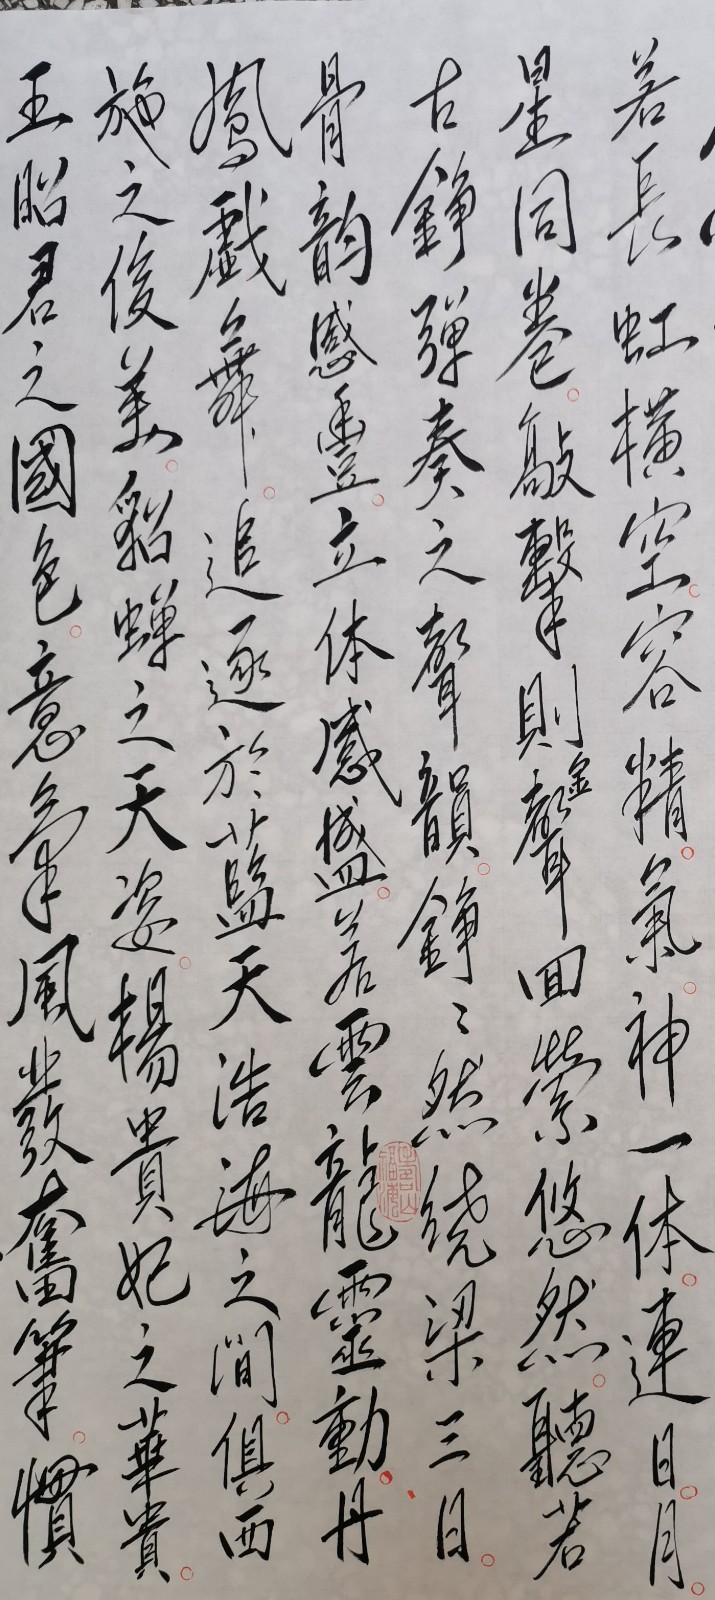 若長虹橫空。容精。氣。神一体。連日。月。
星同卷。敲擊則金聲回縈悠然。聽若
古錚弹奏之聲韻。錚々然绕梁三日。
骨韵感豊。立体感盛。若雲龍靈動。丹
鳳戲舞。追逐於藍天浩海之間。俱西
施之俊美。貂蝉之天姿。楊貴妃之華貴。
王昭君之國色。意氣風發奮筆。慣